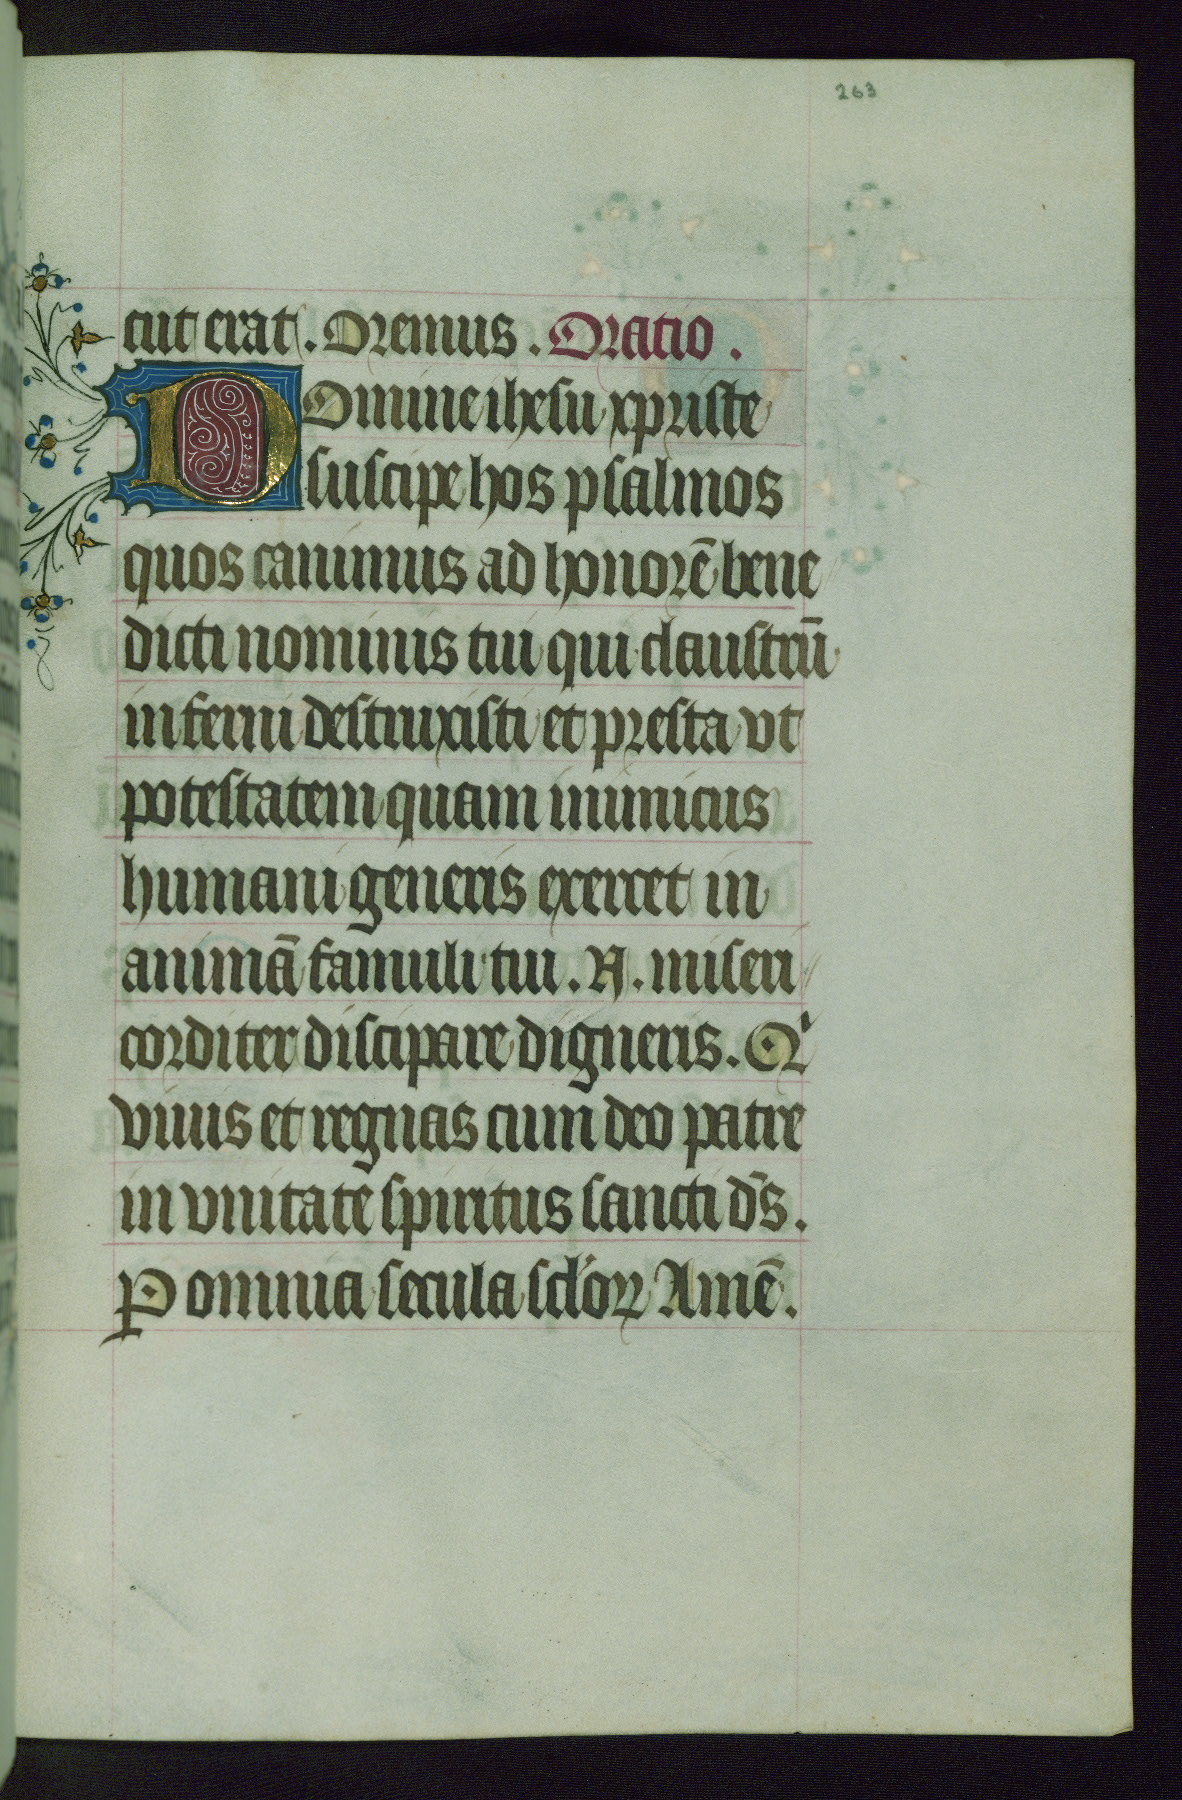 263
cut erat. Oremus. Oratio.
Domine ihesu xpriste
suscipe hos psalmos
quos canimus ad honorē bene
dicti nominis tui qui claustrū
inferni destruxisti et presta vt
potestatem quam inimicus
humani generis exercet in
animā famuli tui. N. miseri
corditer discipare digneris. Qͥ
viuis et regnas cum deo patre
in vnitate spiritus sancti dꝰs.
Ꝑ omnia secula scl'oꝝ Amē.